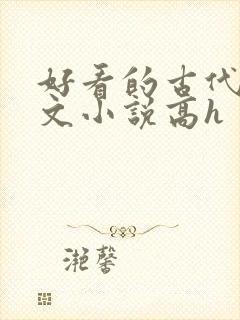 好看的古代
文小说高h
滟馨